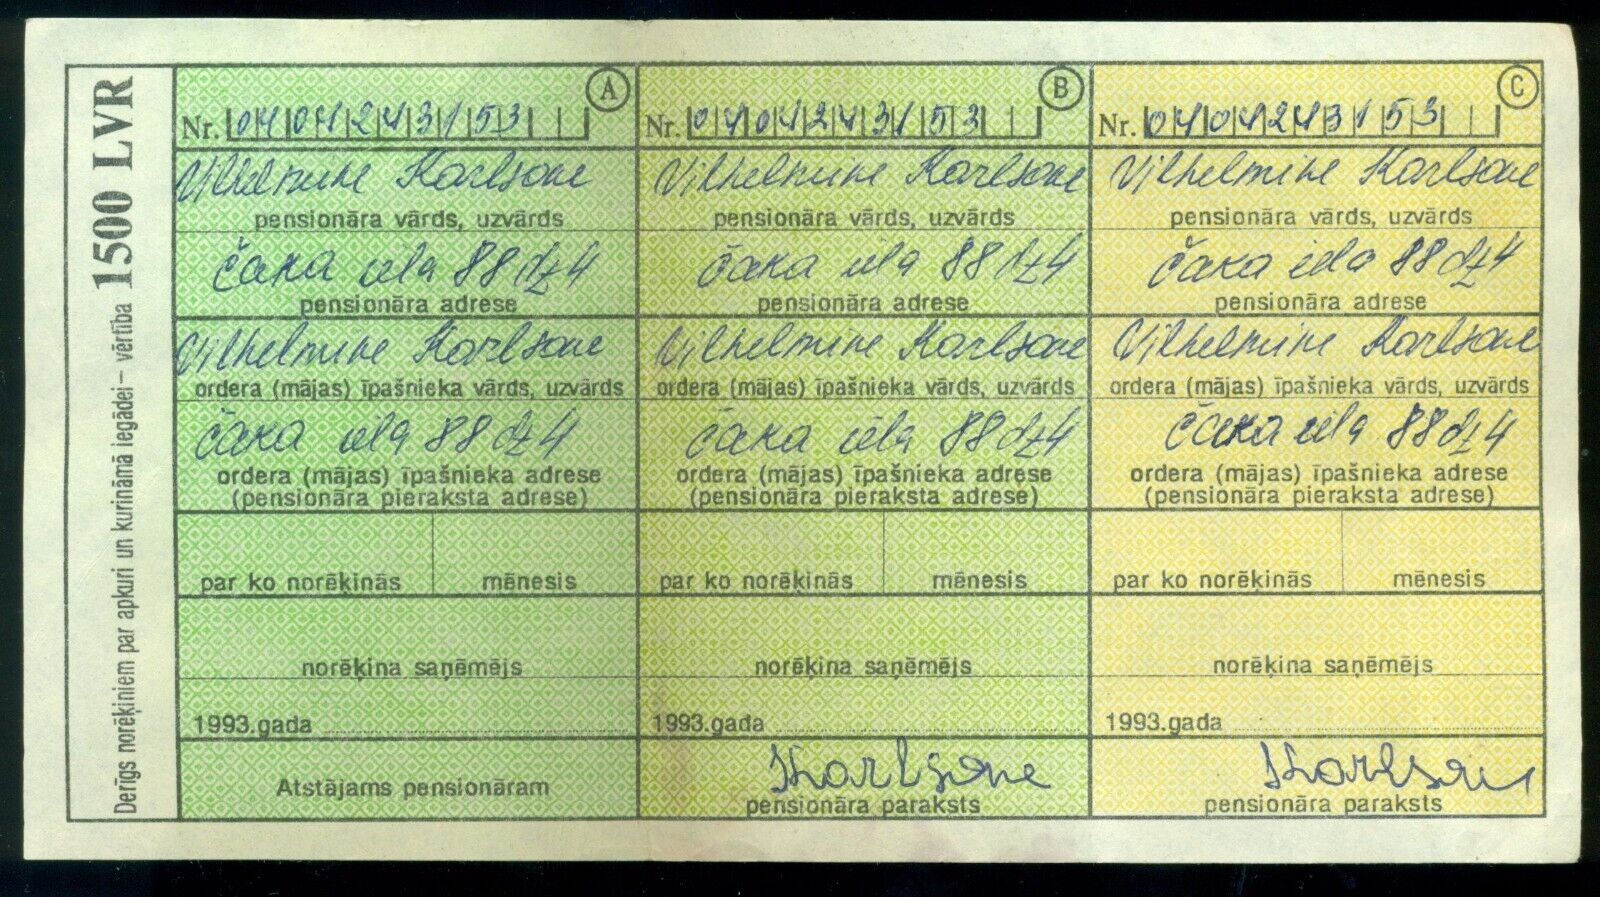 Derīgs norēķiniem par apkuri un kurināmā iegādei – vērtība 1500 LVR
A
Nr. 0404243153
Vilhelmine Karlsone
pensionāra vārds, uzvārds
čaka iela 88 dz 4
pensionāra adrese
Vilhelmine Karlsone
ordera (mājas) īpašnieka vārds, uzvārds
čaka iela 88 dz 4
ordera (mājas) īpašnieka adrese
(pensionāra pieraksta adrese)
par ko norēķinās mēnesis
norēķina saņēmējs
1993.gada
Atstājams pensionāram
B
Nr. 0404243153
Vilhelmine Karlsone
pensionāra vārds, uzvārds
čaka iela 88 dz 4
pensionāra adrese
Vilhelmine Karlsone
ordera (mājas) īpašnieka vārds, uzvārds
čaka iela 88 dz 4
ordera (mājas) īpašnieka adrese
(pensionāra pieraksta adrese)
par ko norēķinās mēnesis
norēķina saņēmējs
1993.gada
Karlsone
pensionāra paraksts
C
Nr. 0404243153
Vilhelmine Karlsone
pensionāra vārds, uzvārds
čaka iela 88 dz 4
pensionāra adrese
Vilhelmine Karlsone
ordera (mājas) īpašnieka vārds, uzvārds
čaka iela 88 dz 4
ordera (mājas) īpašnieka adrese
(pensionāra pieraksta adrese)
par ko norēķinās mēnesis
norēķina saņēmējs
1993.gada
Karlsone
pensionāra paraksts